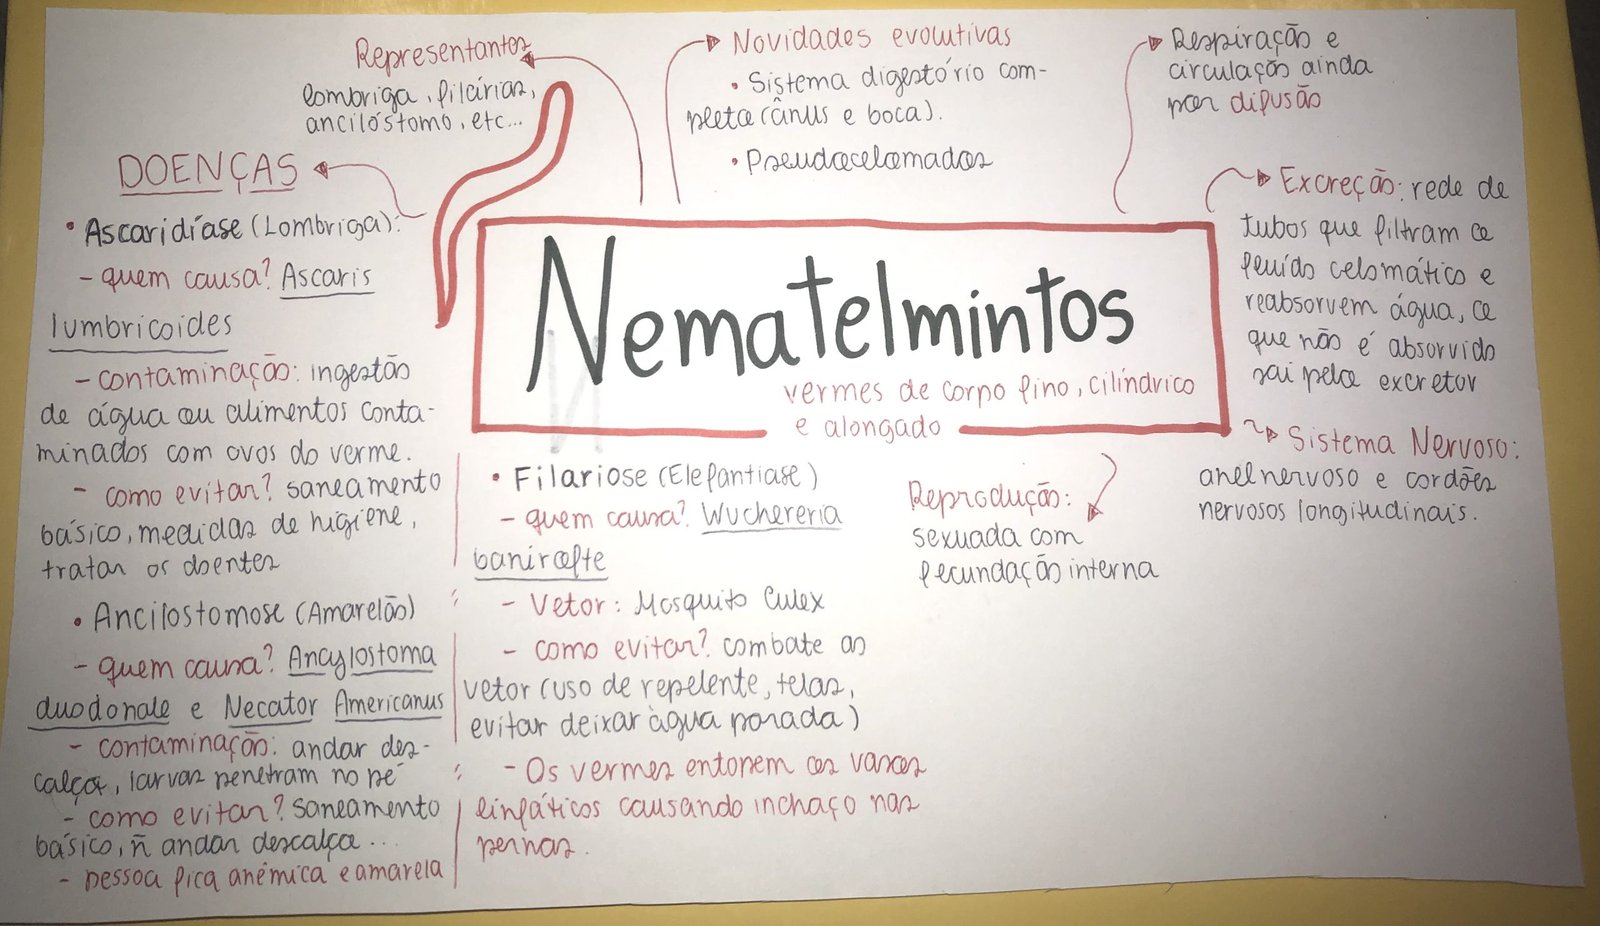 Nematelmintos
vermes de corpo fino, cilíndrico
e alongado
Representantes
lombriga, filárias,
ancilóstomo, etc...
Novidades evolutivas
• Sistema digestório com-
pleto (ânus e boca).
• Pseudocelomados
Respiração e
circulação ainda
por difusão
Excreção: rede de
tubos que filtram o
fluído celomático e
reabsorvem água, o
que não é absorvido
sai pelo excretor
Sistema Nervoso:
anel nervoso e cordões
nervosos longitudinais.
Reprodução:
sexuada com
fecundação interna
DOENÇAS
• Ascaridíase (Lombriga):
- quem causa? Ascaris
lumbricoides
- contaminação: ingestão
de água ou alimentos conta-
minados com ovos do verme.
- como evitar? saneamento
básico, medidas de higiene,
tratar os doentes
• Ancilostomose (Amarelão)
- quem causa? Ancylostoma
duodonale e Necator Americanus
- contaminação: andar des-
calço, larvas penetram no pé
- como evitar? saneamento
básico, ñ andar descalço...
- pessoa fica anêmica e amarela
• Filariose (Elefantíase)
- quem causa? Wuchereria
- Vetor: Mosquito Culex
- como evitar? combate ao
vetor (uso de repelente, telas,
evitar deixar àgua parada)
- Os vermes entopem os vasos
linfáticos causando inchaço nas
pernas.